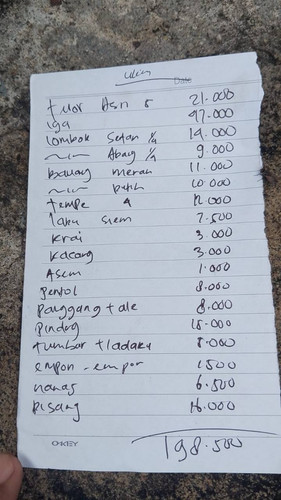 Date
telor Asin 5 21.000
Iga 47.000
lombok Setan 1/4 14.000
~ Abang 1/4 9.000
bawang merah 11.000
~ putih 10.000
tempe 4 12.000
labu siem 7.500
krai 3.000
kacang 3.000
Asem 1.000
pentol 8.000
panggang + ale 8.000
pindng 15.000
tumbar + ladaku 5.000
empon - empon 1500
nanas 6.500
pisang 16.000
O-KEY 198.500